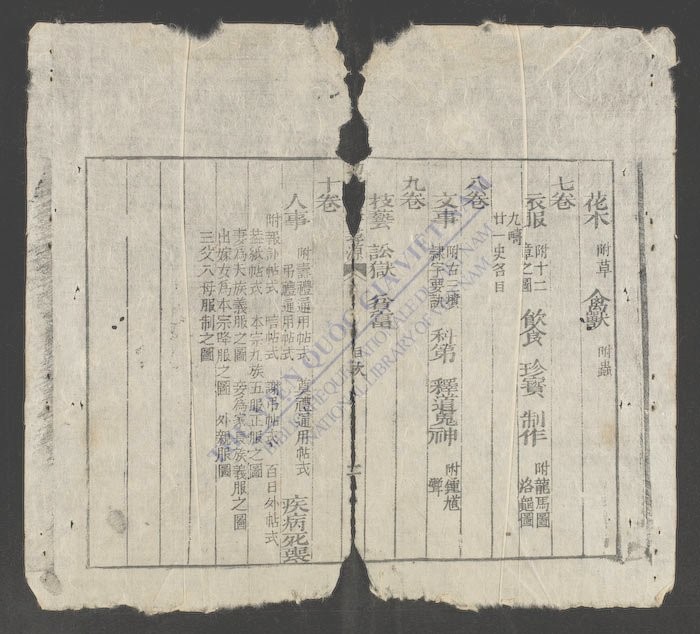 花木 附草 禽獸 附蟲
七卷
衣服 附十二章之圖 飲食 珍寶 制作 附龍馬圖 洛龜圖
九疇
廿一史名目
八卷
文事 附古三墳 隷字要訣 科第 釋道鬼神 附鍾馗
九卷
技藝 訟獄 貧富
目次
十卷
人事 附慶禮通用帖式 弔禮通用帖式 賀禮通用帖式 疾病死喪
附報訃帖式 帖式 謝弔帖式 百日外帖式
帖式 本宗九族五服正服之圖
妻為夫族義服之圖 妾為家長族義服之圖
出嫁女為本宗降服之圖 外親服圖
三父八母服制之圖
THƯ VIỆN QUỐC GIA VIỆT NAM
BIBLIOTHEQUE NATIONALE DU VIETNAM
NATIONAL LIBRARY OF VIETNAM